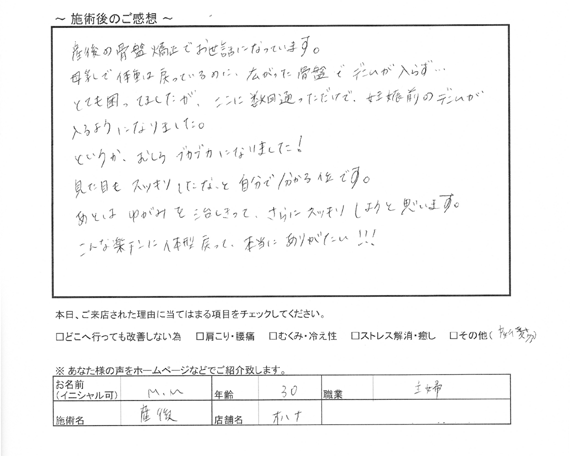 ～ 施術後のご感想 ～
産後の骨盤矯正でお世話になっています。
母乳で体重は戻っているのに、広がった骨盤でデニムが入らず…
とても困ってましたが、ここに数回通っただけで、妊娠前のデニムが
入るようになりました。
というか、むしろ ブカブカになりました！
見た目も スッキリしたな、と 自分で分かる位です。
あとは ゆがみを 治しきって、さらに スッキリ しようと思います。
こんな楽チンに 体型戻って、本当に ありがたい !!!
本日、ご来店された理由に当てはまる項目をチェックしてください。
□どこへ行っても改善しない為 □肩こり・腰痛 □むくみ・冷え性 □ストレス解消・癒し □その他(
※ あなた様の声をホームページなどでご紹介致します。
お名前 (イニシャル可) M.M 年齢 30 職業 主婦
施術名 産後 店舗名 オハナ